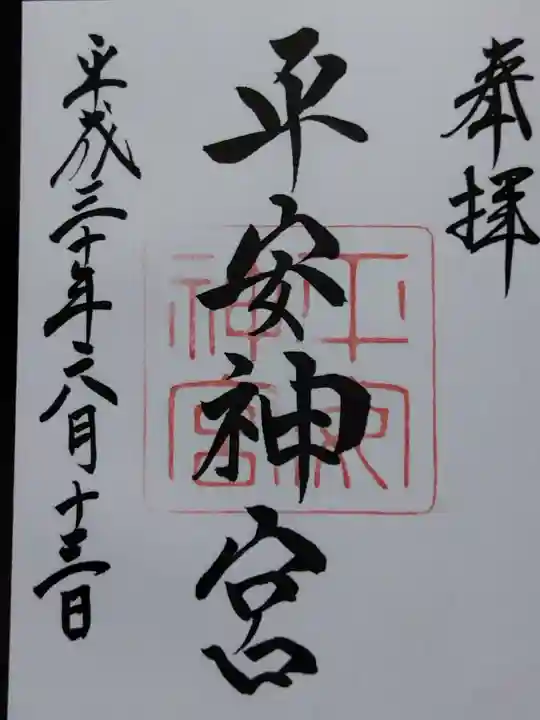 奉拝
平安神宮
平安神宮
平成三十年六月十三日